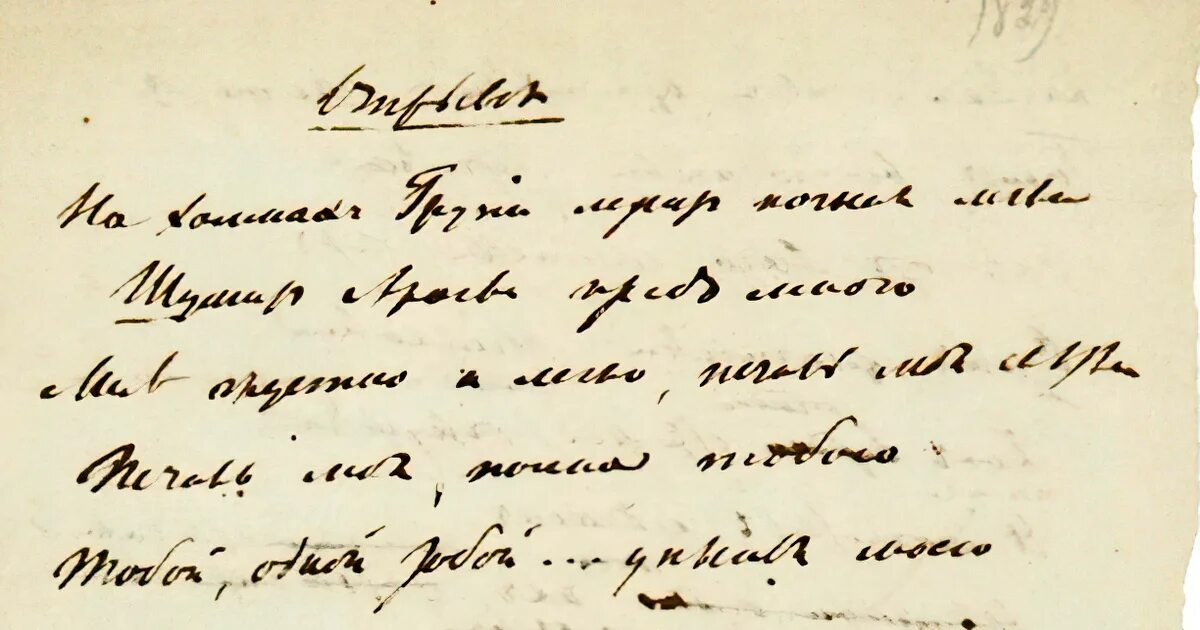 1829
Отрывок
На холмахъ Грузіи лежитъ ночная мгла
Шумитъ Арагва предо мною
Мнѣ грустно и легко, печаль моя свѣтла
Печаль моя, полна тобою
Тобой, одной тобой... унынья моего